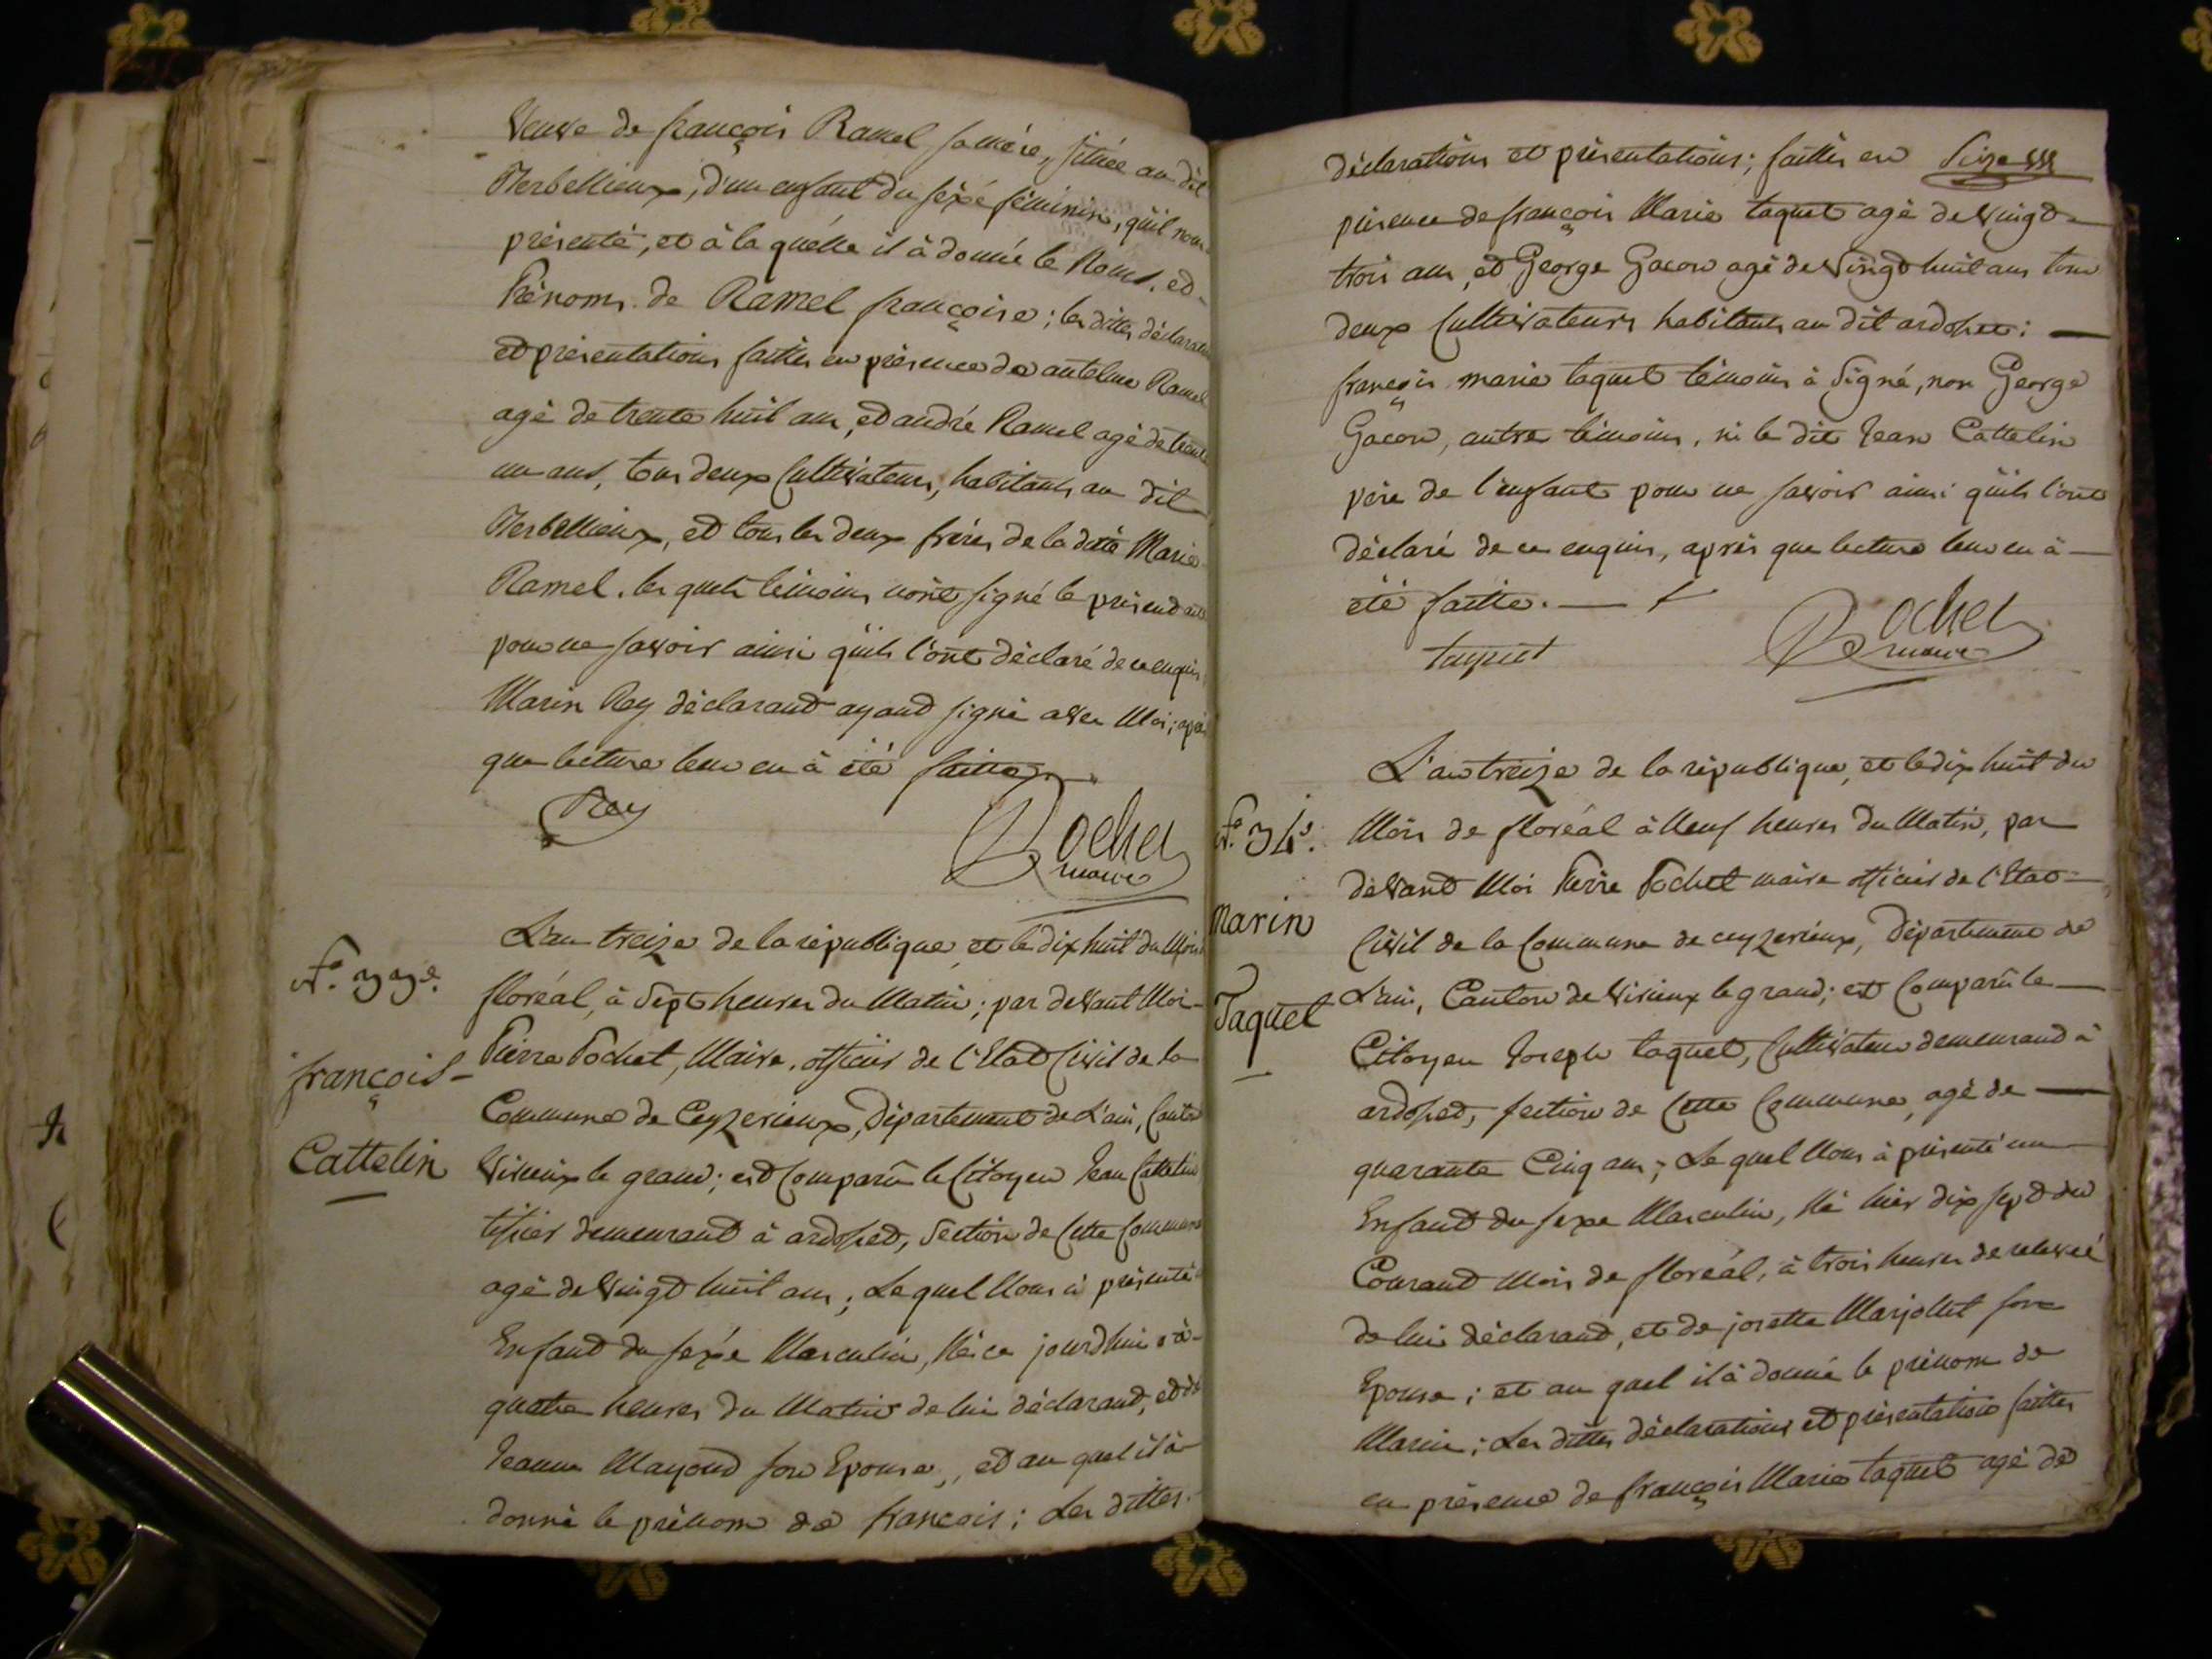 Veuve de françois Ramel sa mére, située au dit
Herbellieux, d'un enfant du séxé féminin, qu'il nous
présenté, et à la quélle il à donné le Nom, et
Prénoms de Ramel françoise; les dittes déclaration
et présentations faittes en présence de antelme Ramel
agé de trente huit ans, et andré Ramel agé de trente
un ans, tous deux Cultivateurs, habitants au dit
Herbellieux, et tous les deux fréres de la dite Marie
Ramel. les quels témoins n'ont signé le présend acte
pour ne savoir ainsi qu'ils l'ont déclaré de ce enquis
Marin Rey déclarand ayand signé avec Moi; après
que lecture leur en à été faitte.
Rey
Pochet
maire
N.° 33.e
françois
Cattelin
L'an treize de la république, et le dix huit du Mois
floréal, à Sept heures du Matin; par devant Moi
Pierre Pochet, Maire, officier de l'Etat Civil de la
Commune de Ceyzerieux, Département de L'ain, Canton
Virieux le grand; est Comparû le Citoyen Jean Cattelin
tissier demeurand à ardosset, Section de Cette Commune
agé de Vingt huit ans; Le quel Nous à présenté
Enfand du sexé Masculin, Né ce jourd'hui à
quatre heures du Matin de lui déclarand, et de
Jeanne Mayoud son Epouse, et au quel il à
donné le prénom de françois; Les dittes
déclarations et présentations; faittes en Seize
présence de françois Marie taquet agé de Vingt
trois ans, et George Gacon agé de Vingt huit ans tous
deux Cultivateurs habitants au dit ardosset:
françois marie taquet témoins à Signé, non George
Gacon, autre témoins, ni le dit Jean Cattelin
pére de l'enfant pour ne savoir ainsi qu'ils l'ont
déclaré de ce enquis, aprés que lecture leur en à
été faitte.
taquet
Pochet
maire
N.° 34.e
Marin
Taquet
L'an treize de la république, et le dix huit du
Mois de floréal à Neuf heures du Matin, par
dévant Moi Pierre Pochet maire officier de l'Etat
Civil de la Commune de ceyzerieux, Département de
L'ain, Canton de Virieux le grand; est Comparû le
Citoyen Joseph taquet, Cultivateur demeurand à
ardosset, section de Cette Commune, agé de
quarante Cinq ans; Le quel Nous à présenté un
Enfand du sexe Masculin, Né hier dix sept du
Courand Mois de floréal, à trois heures de relevée
de lui déclarand, et de josette Marjollet son
Epouse; et au quel il à donné le prénom de
Marin; Les dittes déclarations et présentation faittes
en présence de françois Marie taquet agé de